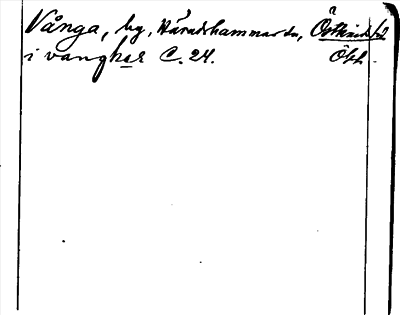 Vånga, by, Häradshammars sn, Östkinds hd
i vanghar C. 24. Ögtl.